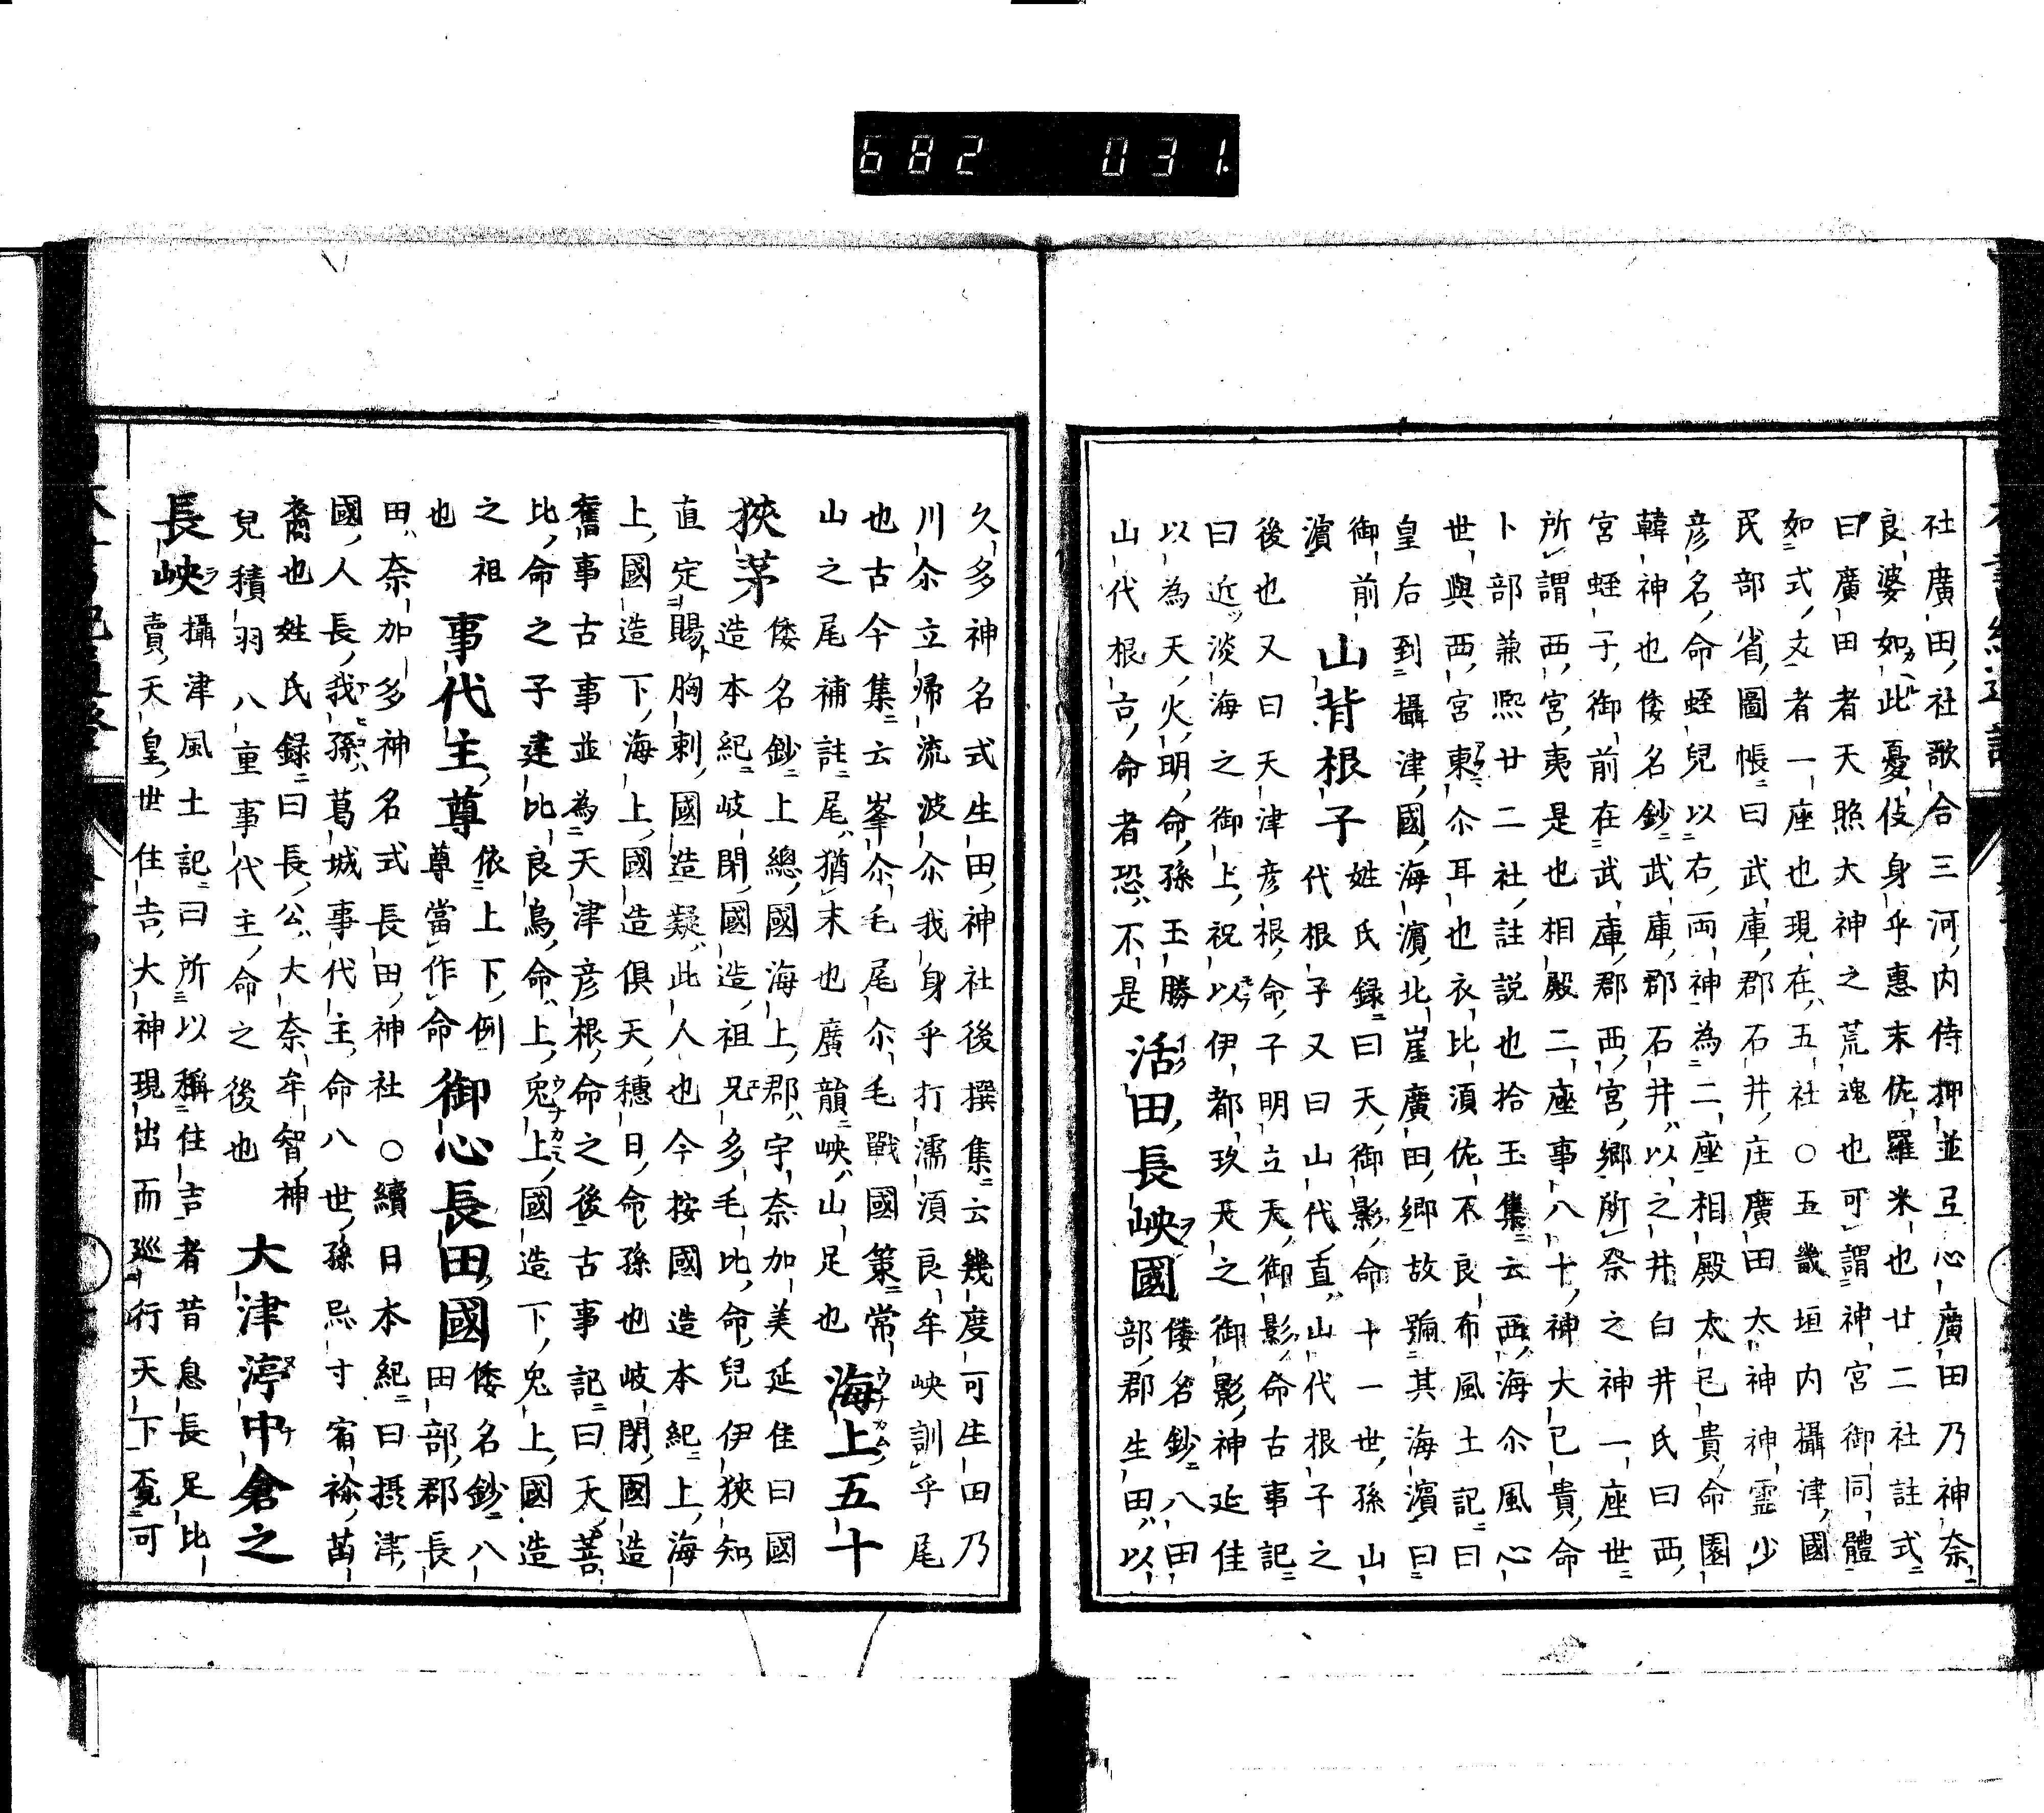 682 031.
社廣田社歌合三河内侍押並弖心廣田乃神奈
良婆如此憂伎身乎惠末佐羅米也廿二社註式
曰廣田者天照大神之荒魂也可謂神宮御同體
如式文者一座也現在五社○五畿垣内攝津國
民部省圖帳曰武庫郡石井庄廣田大神神霊少
彦名命蛭兒以右兩神為二座相殿太已貴命園
韓神也倭名鈔武庫郡石井以之井白井氏曰西
宮蛭子御前在武庫郡西宮郷所祭之神一座世
所謂西宮夷是也相殿二座事八十神大已貴命
卜部兼煕廿二社註説也拾玉集云西海尒風心
世與西宮東尒耳也衣比湏佐不良布風土記曰
皇后到攝津國海濵北崖廣田郷故號其海濵曰
御前濵 山背根子 姓氏録曰天御影命十一世孫山
代根子又曰山代直山代根子之
後也又曰天津彦根命子明立天御影命古事記
曰近淡海之御上祝以伊都玖天之御影神延佳
以為天火明命孫玉勝
山代根古命者恐不是 活田長峽國 倭名鈔八田
部郡生田以
久多神名式生田神社後撰集云幾度可生田乃
川尒立帰流波尒我身乎打濡湏良牟峽訓乎尾
也古今集云峯尒毛尾尒毛戰國策常
山之尾補註尾猶末也廣韻峽山足也 海上五十
狹茅 倭名鈔上總國海上郡宇奈加美延佳曰國
造本紀岐閉國造祖兄多毛比命兒伊狹知
直定賜胸刺國造疑此人也今按國造本紀上海
上國造下海上國造俱天穗日命孫也岐閉國造
舊事古事並為天津彦根命之後古事記曰天菩
比命之子建比良鳥命上兎上國造下兎上國造
之祖
也 事代主尊 依上下例
尊當作命 御心長田國 倭名鈔八
田部郡長
田奈加多神名式長田神社○續日本紀曰摂津
國人長我孫葛城事代主命八世孫忌寸宿祢苗
裔也姓氏録曰長公大奈牟智神
兒積羽八重事代主命之後也 大津渟中倉之
長峽 攝津風土記曰所以稱住吉者昔息長足比
賣天皇世住吉大神現出而巡行天下覔可